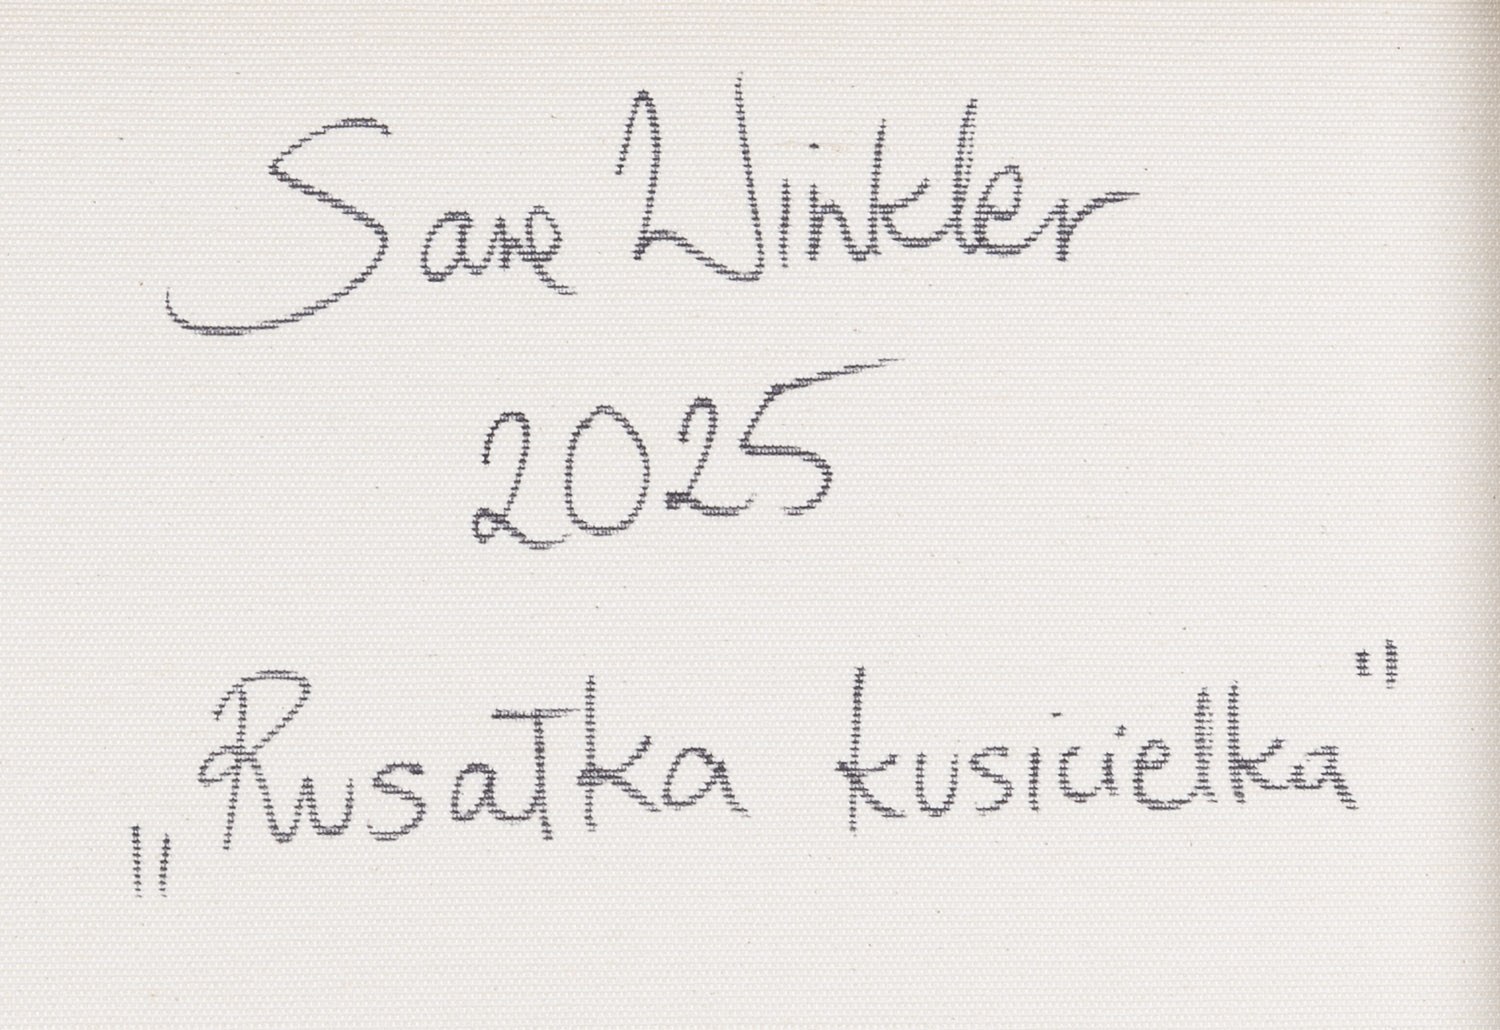 Winkler
2025
„Rusałka kusicielka"